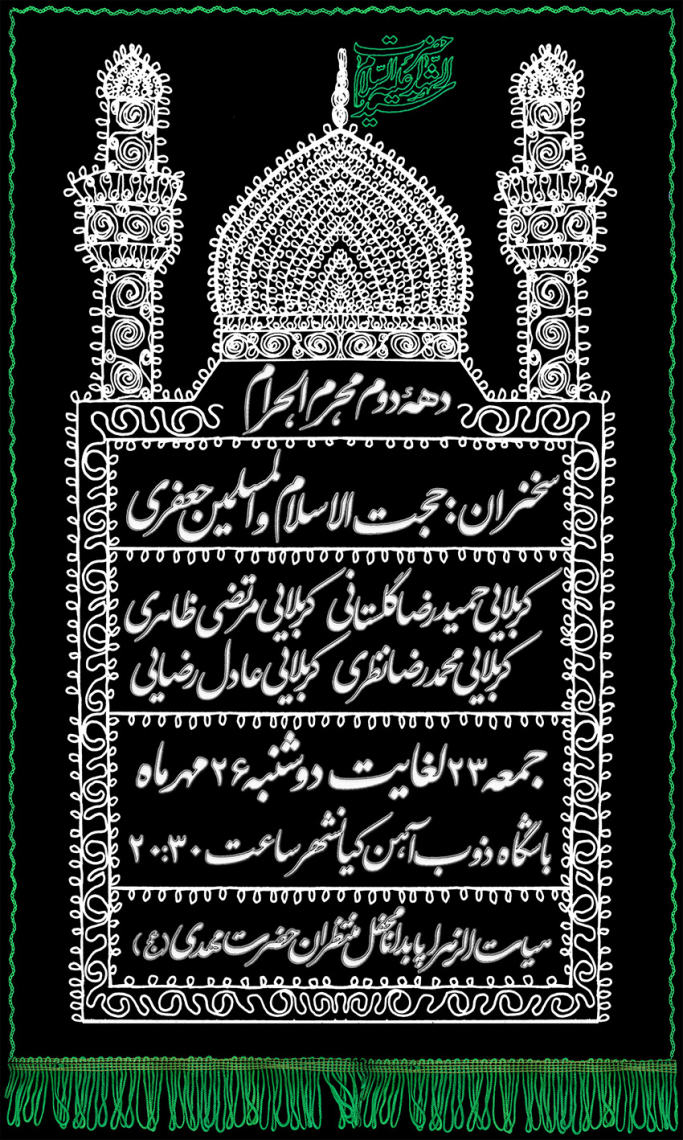 حضرت سید الشهدا علیه السلام
دههٔ دوم محرم الحرام
سخنران: حجت الاسلام والمسلمین جعفری
کربلایی حمیدرضا گلستانی کربلایی مرتضی طاهری
کربلایی محمدرضا نظری کربلایی عادل رضایی
جمعه ۲۳ لغایت دوشنبه ۲۶ مهرماه
باشگاه ذوب آهن کیانشهر ساعت ۲۰:۳۰
هیات الزهرا پابدانا محفل منتظران حضرت مهدی (عج)